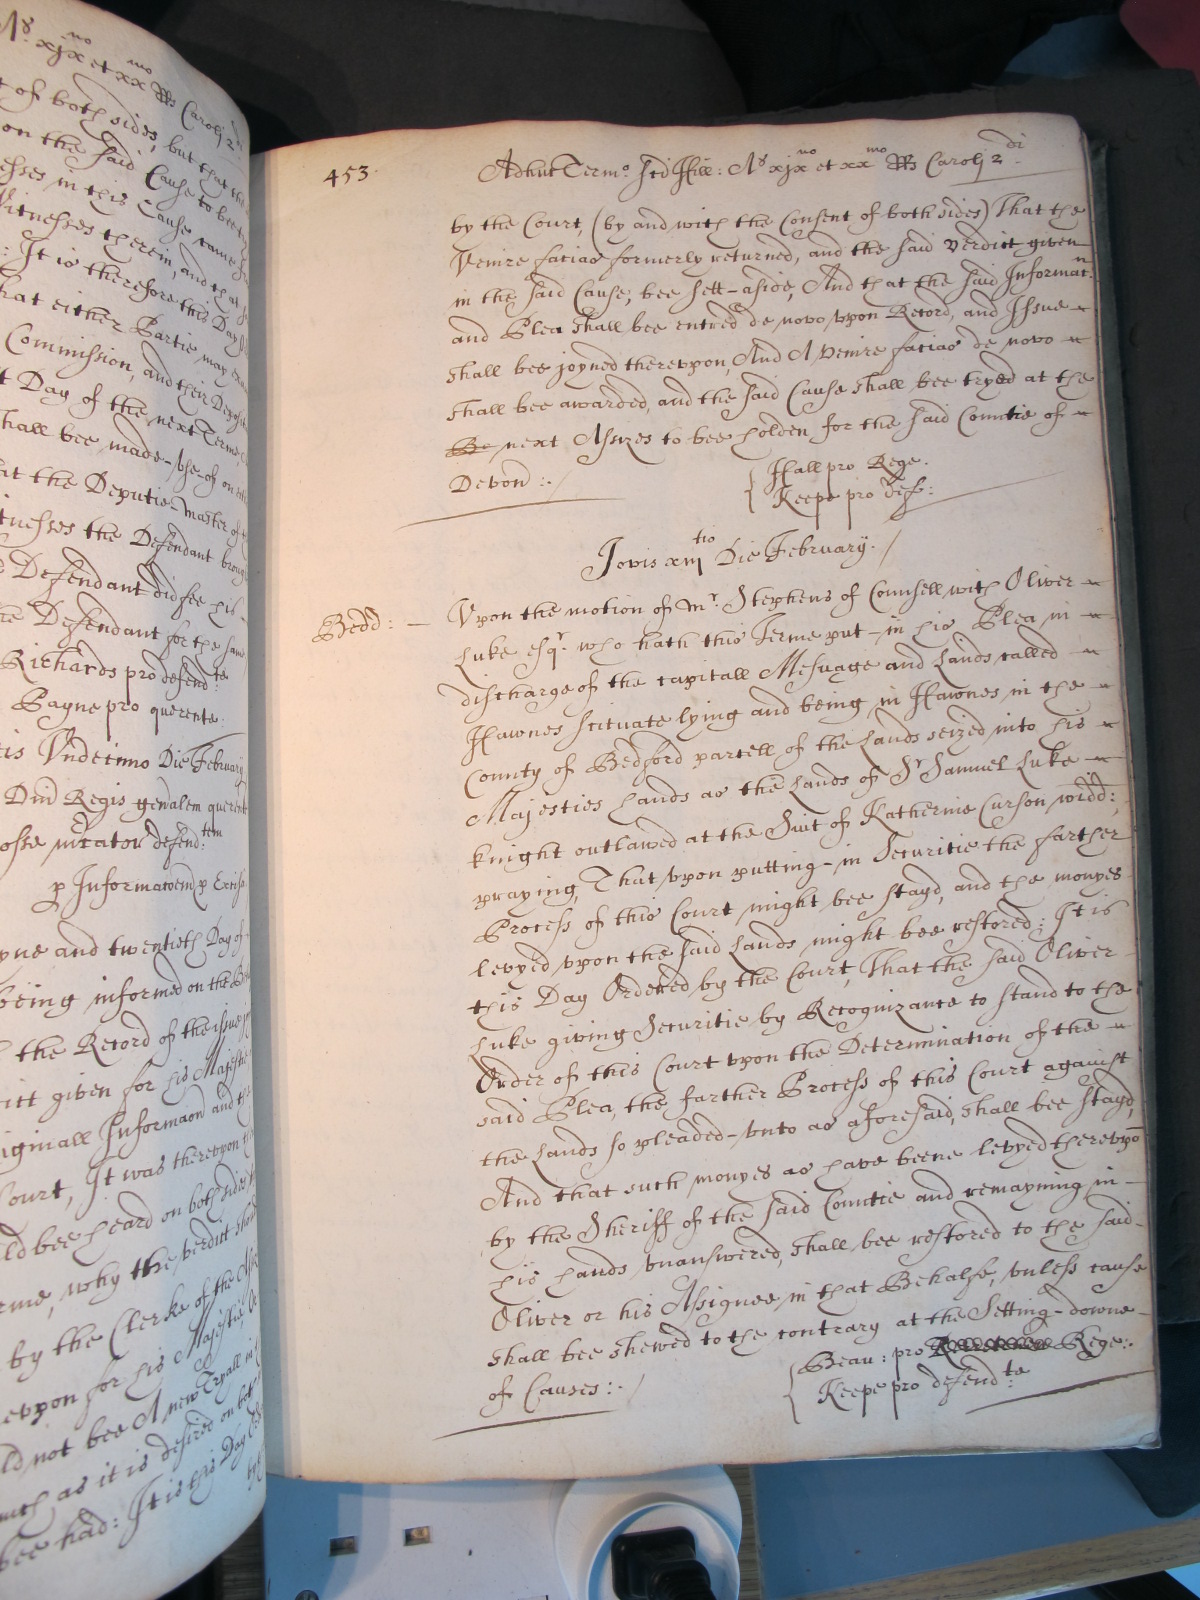 Ao xjx no et xx mo Rs Caroli 2 di
t of both sides, but that the
on the said Cause to bee
esses in this Cause came
Witnesses therein, and that
: It is therefore this Day
hat either Partie may
Commission, and their
t Day of the next Terme,
hall bee made-use-of on
at the Deputie-Master of
tnesses the Defendant
Defendant did fee his
Defendant for the same
Richards pro defend: te
Payne pro querente.
is Undecimo Die February
Dni Regis genalem
osse defend: tem
p Informacoem p
yne and twentieth Day of
being informed on the
the Record of the issue
ict given for his Majestie
iginall Informacon and
Court, It was thereupon
ld bee heard on both sides
rme, why the verdict should
by the Clerke of the
evpon for his Majestie
ld not bee A new Tryall in
much as it is desired on both
bee had: It is this Day
453.
Adhuc Termo Scti Hill: Ao xjx no et xx mo Rs Caroli 2 di.
by the Court, (by and with the Consent of both sides) That the
Venire facias formerly returned, and the said Verdict given
in the said Cause, bee sett-aside, And that the said Informat:n
and Plea shall bee entred de novo vpon Record, and Issue
shall bee joyned therevpon, And A venire facias de novo
shall bee awarded, and the said Cause shall bee tryed at the
Be next Assizes to bee holden for the said Countie of
Devon:.
Hall pro Rege.
Keepe pro def:
Jovis xiij tio Die February.
Bedd:
Vpon the motion of Mr. Stephens of Counsell with Oliver
Luke esqr. who hath this Terme put-in his Plea in
discharge of the capitall Mesuage and Lands called
Hawnes scituate lying and being in Hawnes in the
County of Bedford parcell of the Lands seized into his
Majesties hands as the Lands of Sr Samuel Luke
knight outlawed at the Suit of Katherine Curson widd:,
praying, That vpon putting-in Securitie the farther
Process of this Court might bee stayd, and the monyes
levyed vpon the said Lands might bee restored; It is
this Day Ordered by the Court, That the said Oliver
Luke giving Securitie by Recognizance to stand to the
Order of this Court vpon the Determination of the
said Plea, the farther Process of this Court against
the Lands so pleaded-vnto as aforesaid, shall bee stayd,
And that such monyes as have beene levyed therevpō
by the Sheriff of the said Countie and remayning in
his hands vnanswered, shall bee restored to the said
Oliver or his Assignee in that Behalfe, vnless cause
shall bee shewed to the contrary at the Setting-downe
of Causes:.
Beau: pro Rege:.
Keepe pro defend: te